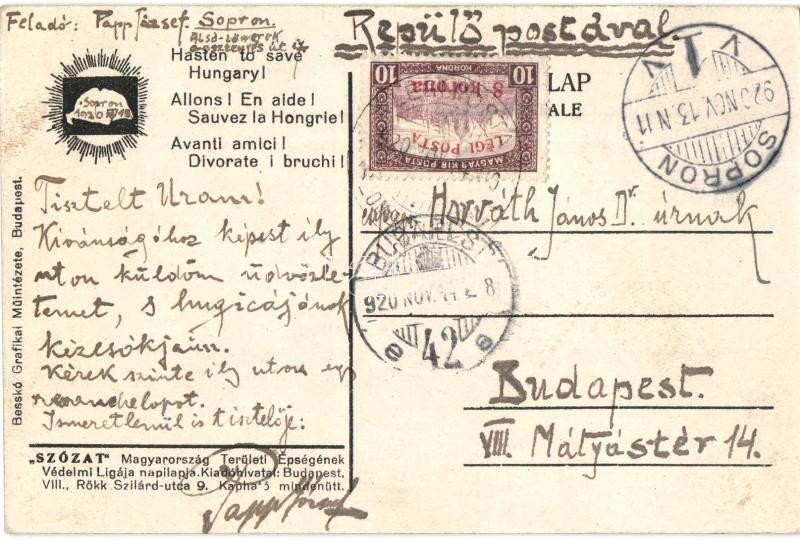 Feladó: Papp József. Sopron.
Alsó-Lőwerek
Repülő postával.
Hasten to save
Hungary!
Allons! En aide!
Sauvez la Hongrie!
Avanti amici!
Divorate i bruchi!
Sopron
1920
10 KORONA 10
8 korona
LÉGI POSTA
MAGYAR KIR. POSTA
LAP
ALE
SOPRON
920 NOV. 13 N 11
V 1 V
Tisztelt Uram!
Kivánságához képest ily
uton küldöm üdvözle-
temet, s hugicájának
kézcsókjaim.
Kérek szinte ily uton egy
Ismeretlenül is tisztelője:
Papp József
Horváth János Dr. úrnak
BUDAPEST
920 NOV. 14. 8
42
Budapest.
VIII. Mátyástér 14.
Besskó Grafikai Műintézete, Budapest.
„SZÓZAT" Magyarország Területi Épségének
Védelmi Ligája napilapja. Kiadóhivatal: Budapest,
VIII., Rökk Szilárd-utca 9. Kapható mindenütt.